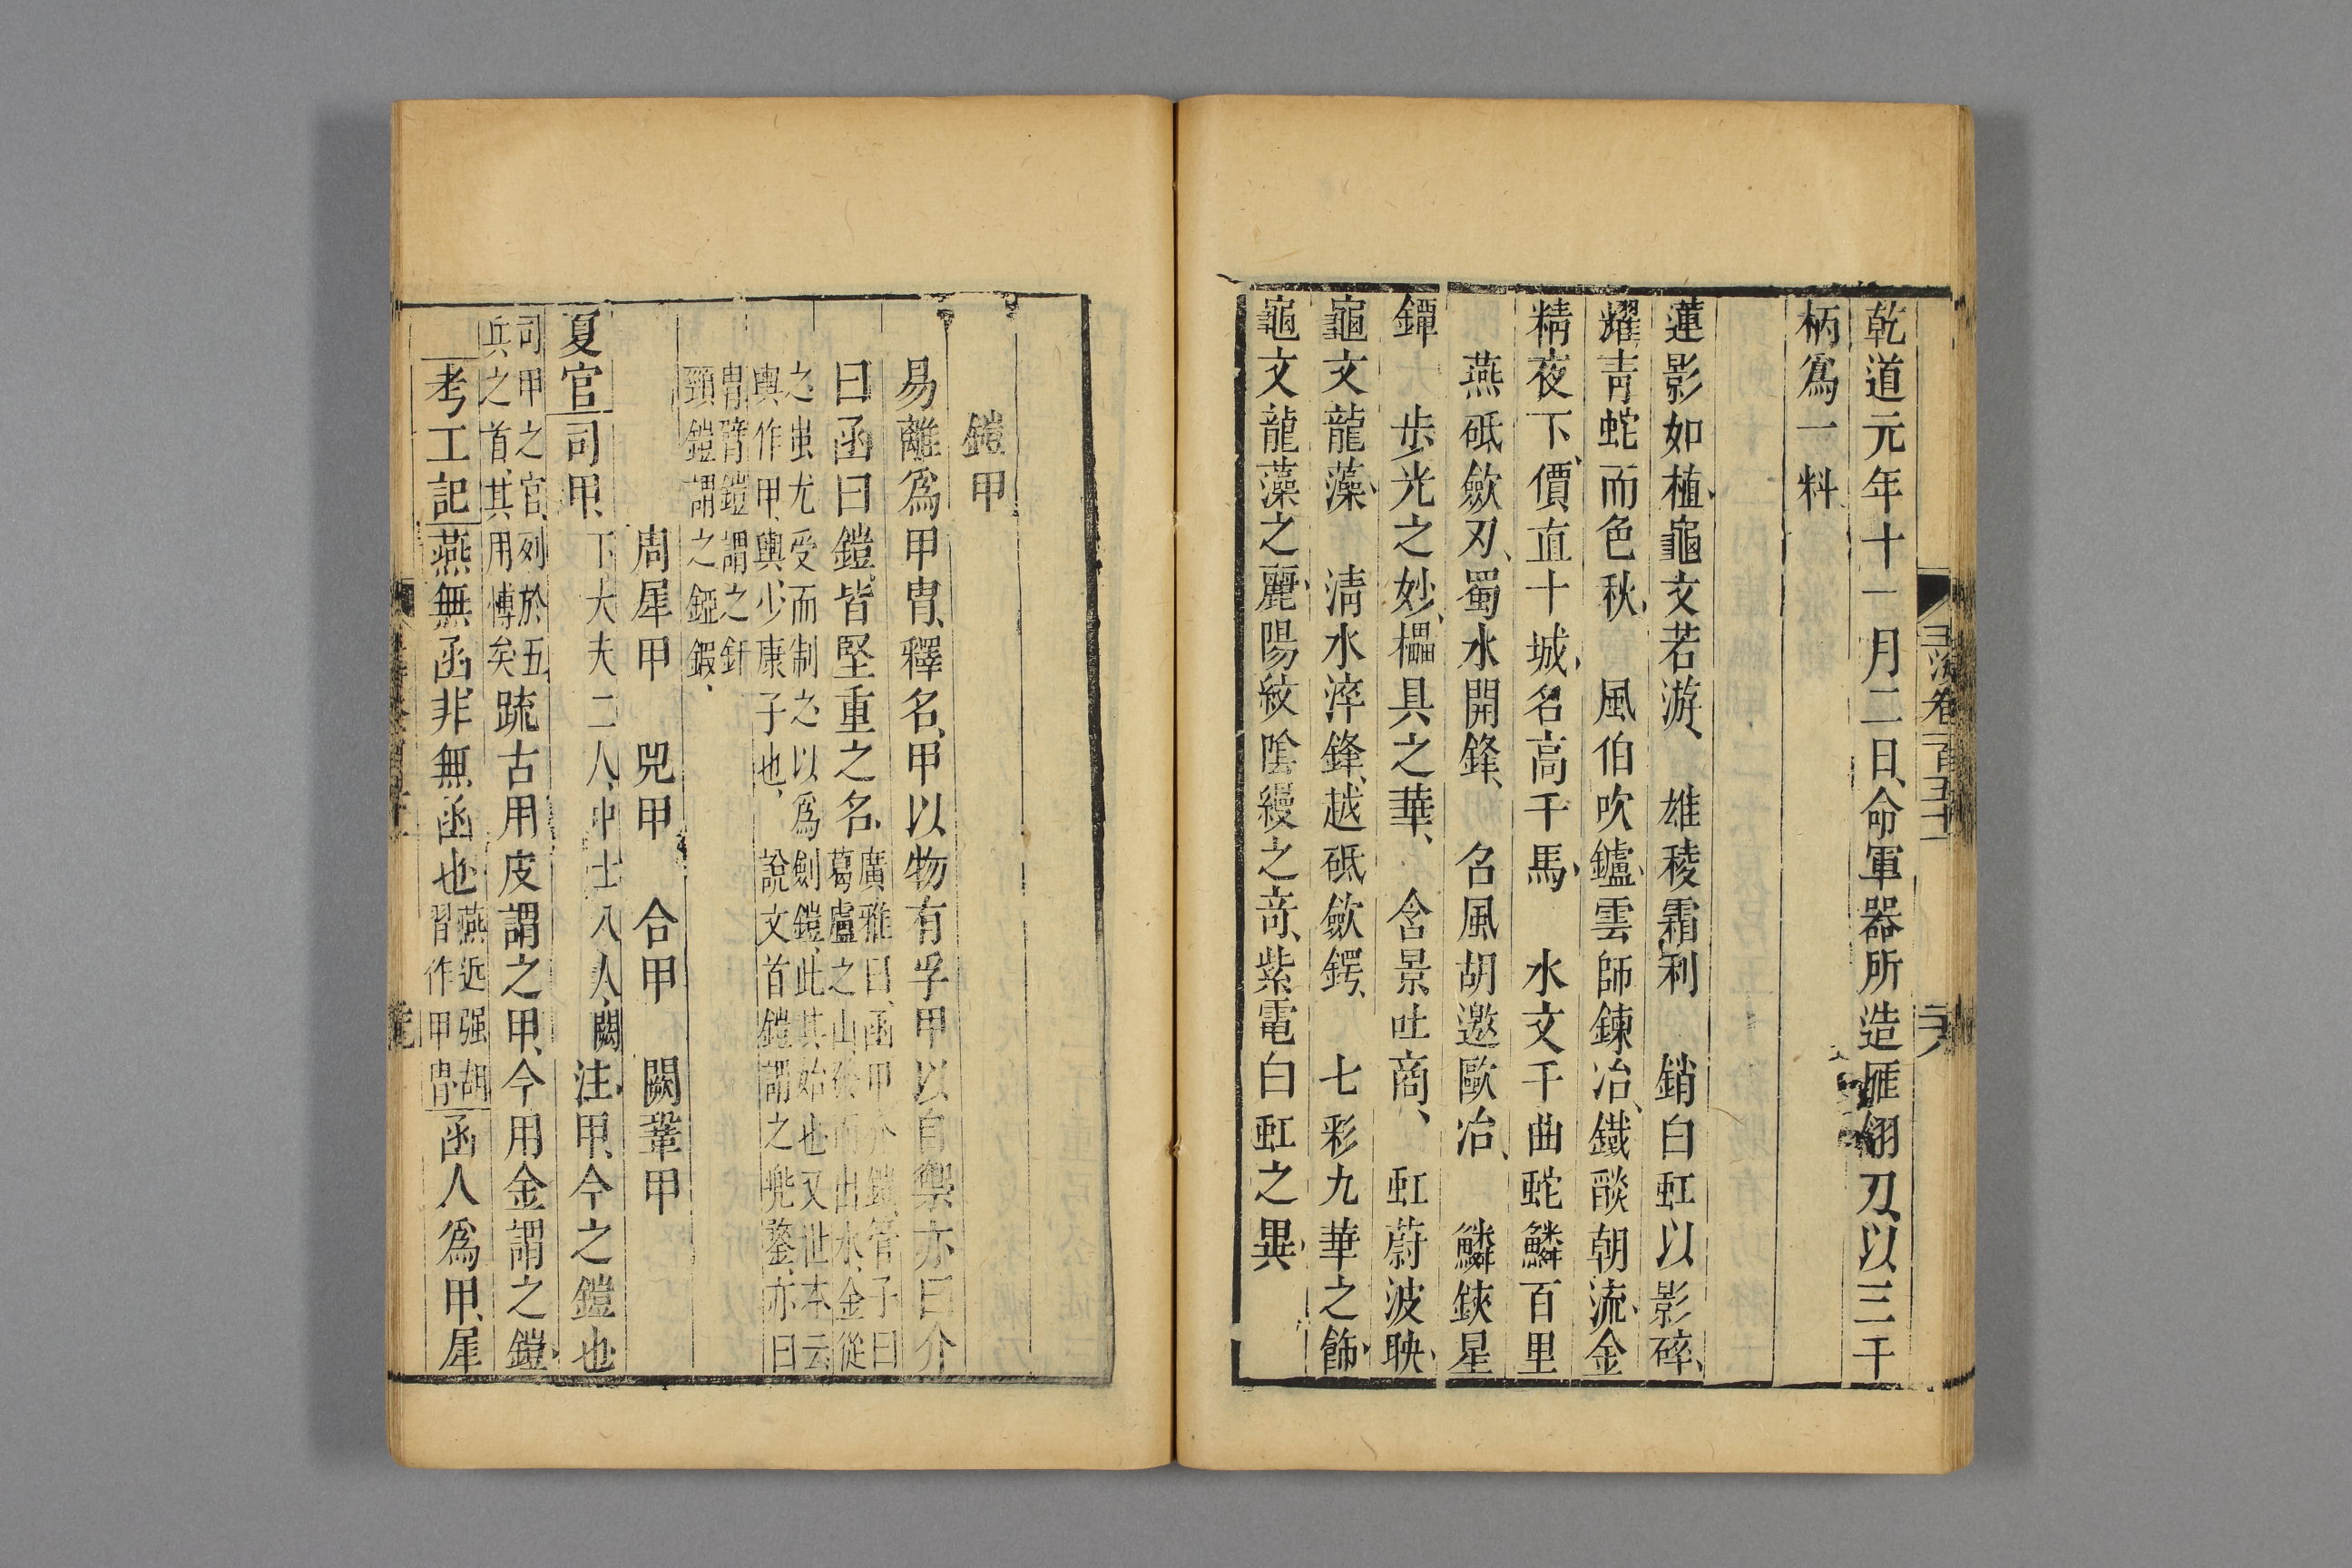 玉海卷一百五十一
乾道元年十一月二日命軍器所造雁翎刀以三千
柄爲一料
蓮影如植龜文若游　雄稜霜利　銷白虹以影碎
耀青蛇而色秋　風伯吹鑪雲師鍊冶鐵燄朝流金
精夜下價直十城名高千馬　水文千曲蛇鱗百里
燕砥斂刃蜀水開鋒　名風胡邀歐冶　鱗鋏星
鐔　步光之妙櫑具之華　含景吐商　虹蔚波映
龜文龍藻　清水淬鋒越砥斂鍔　七彩九華之飾
龜文龍藻之麗陽紋陰縵之奇紫電白虹之異
鎧甲
易離爲甲胄釋名甲以物有孚甲以自禦亦曰介
曰函曰鎧皆堅重之名
廣雅曰函甲介鎧管子曰
葛盧之山發而出水金從
之蚩尤受而制之以爲劍鎧此其始也又世本云
輿作甲輿少康子也　說文首鎧謂之兜鍪亦曰
胄臂鎧謂之釬
頸鎧謂之錏鍜
周犀甲　兕甲　合甲　闕鞏甲
夏官司甲下大夫二人中士八人闕注甲今之鎧也
司甲之官列於五
兵之首其用博矣
疏古用皮謂之甲今用金謂之鎧
考工記燕無函非無函也
燕近强胡
習作甲胄
函人爲甲犀